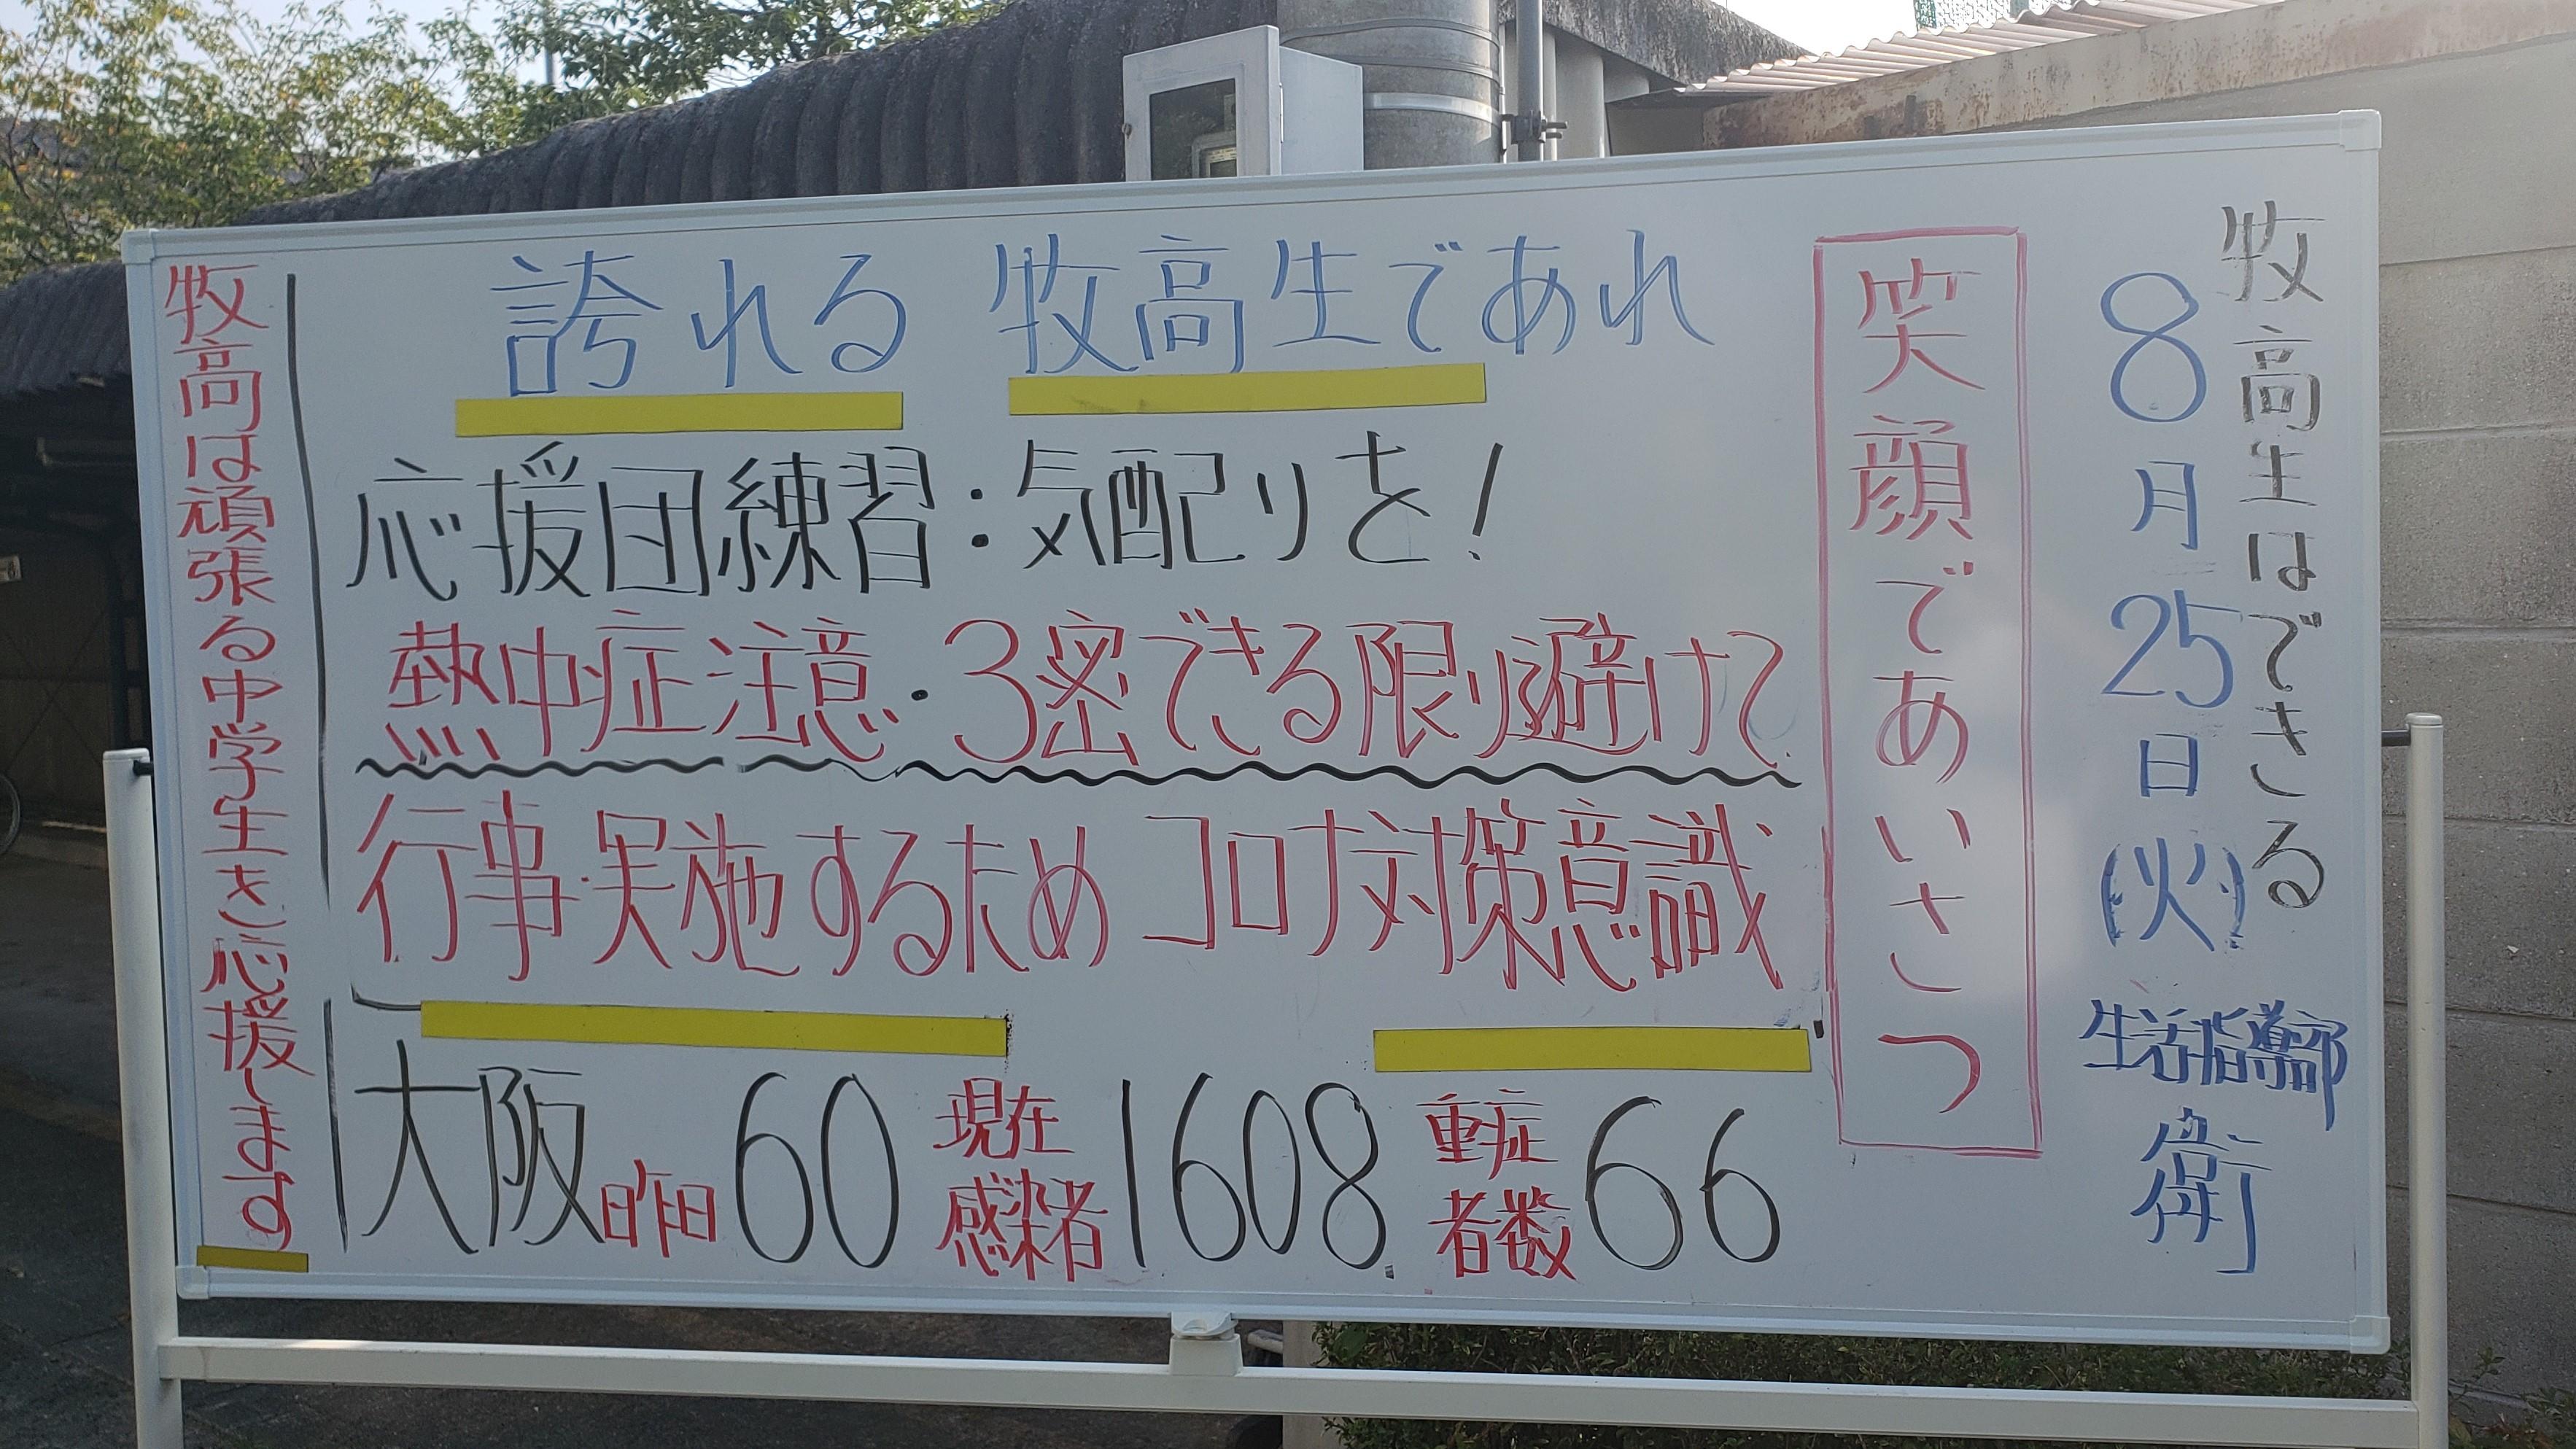 牧高生はできる
8月25日(火) 生活指導部 衛
笑顔であいさつ
誇れる 牧高生であれ
応援団練習:気配りを!
熱中症注意・3密できる限り避けて
行事・実施するため コロナ対策意識
大阪 昨日 60 現在感染者 1608 重症者数 66
牧高は頑張る中学生を応援します